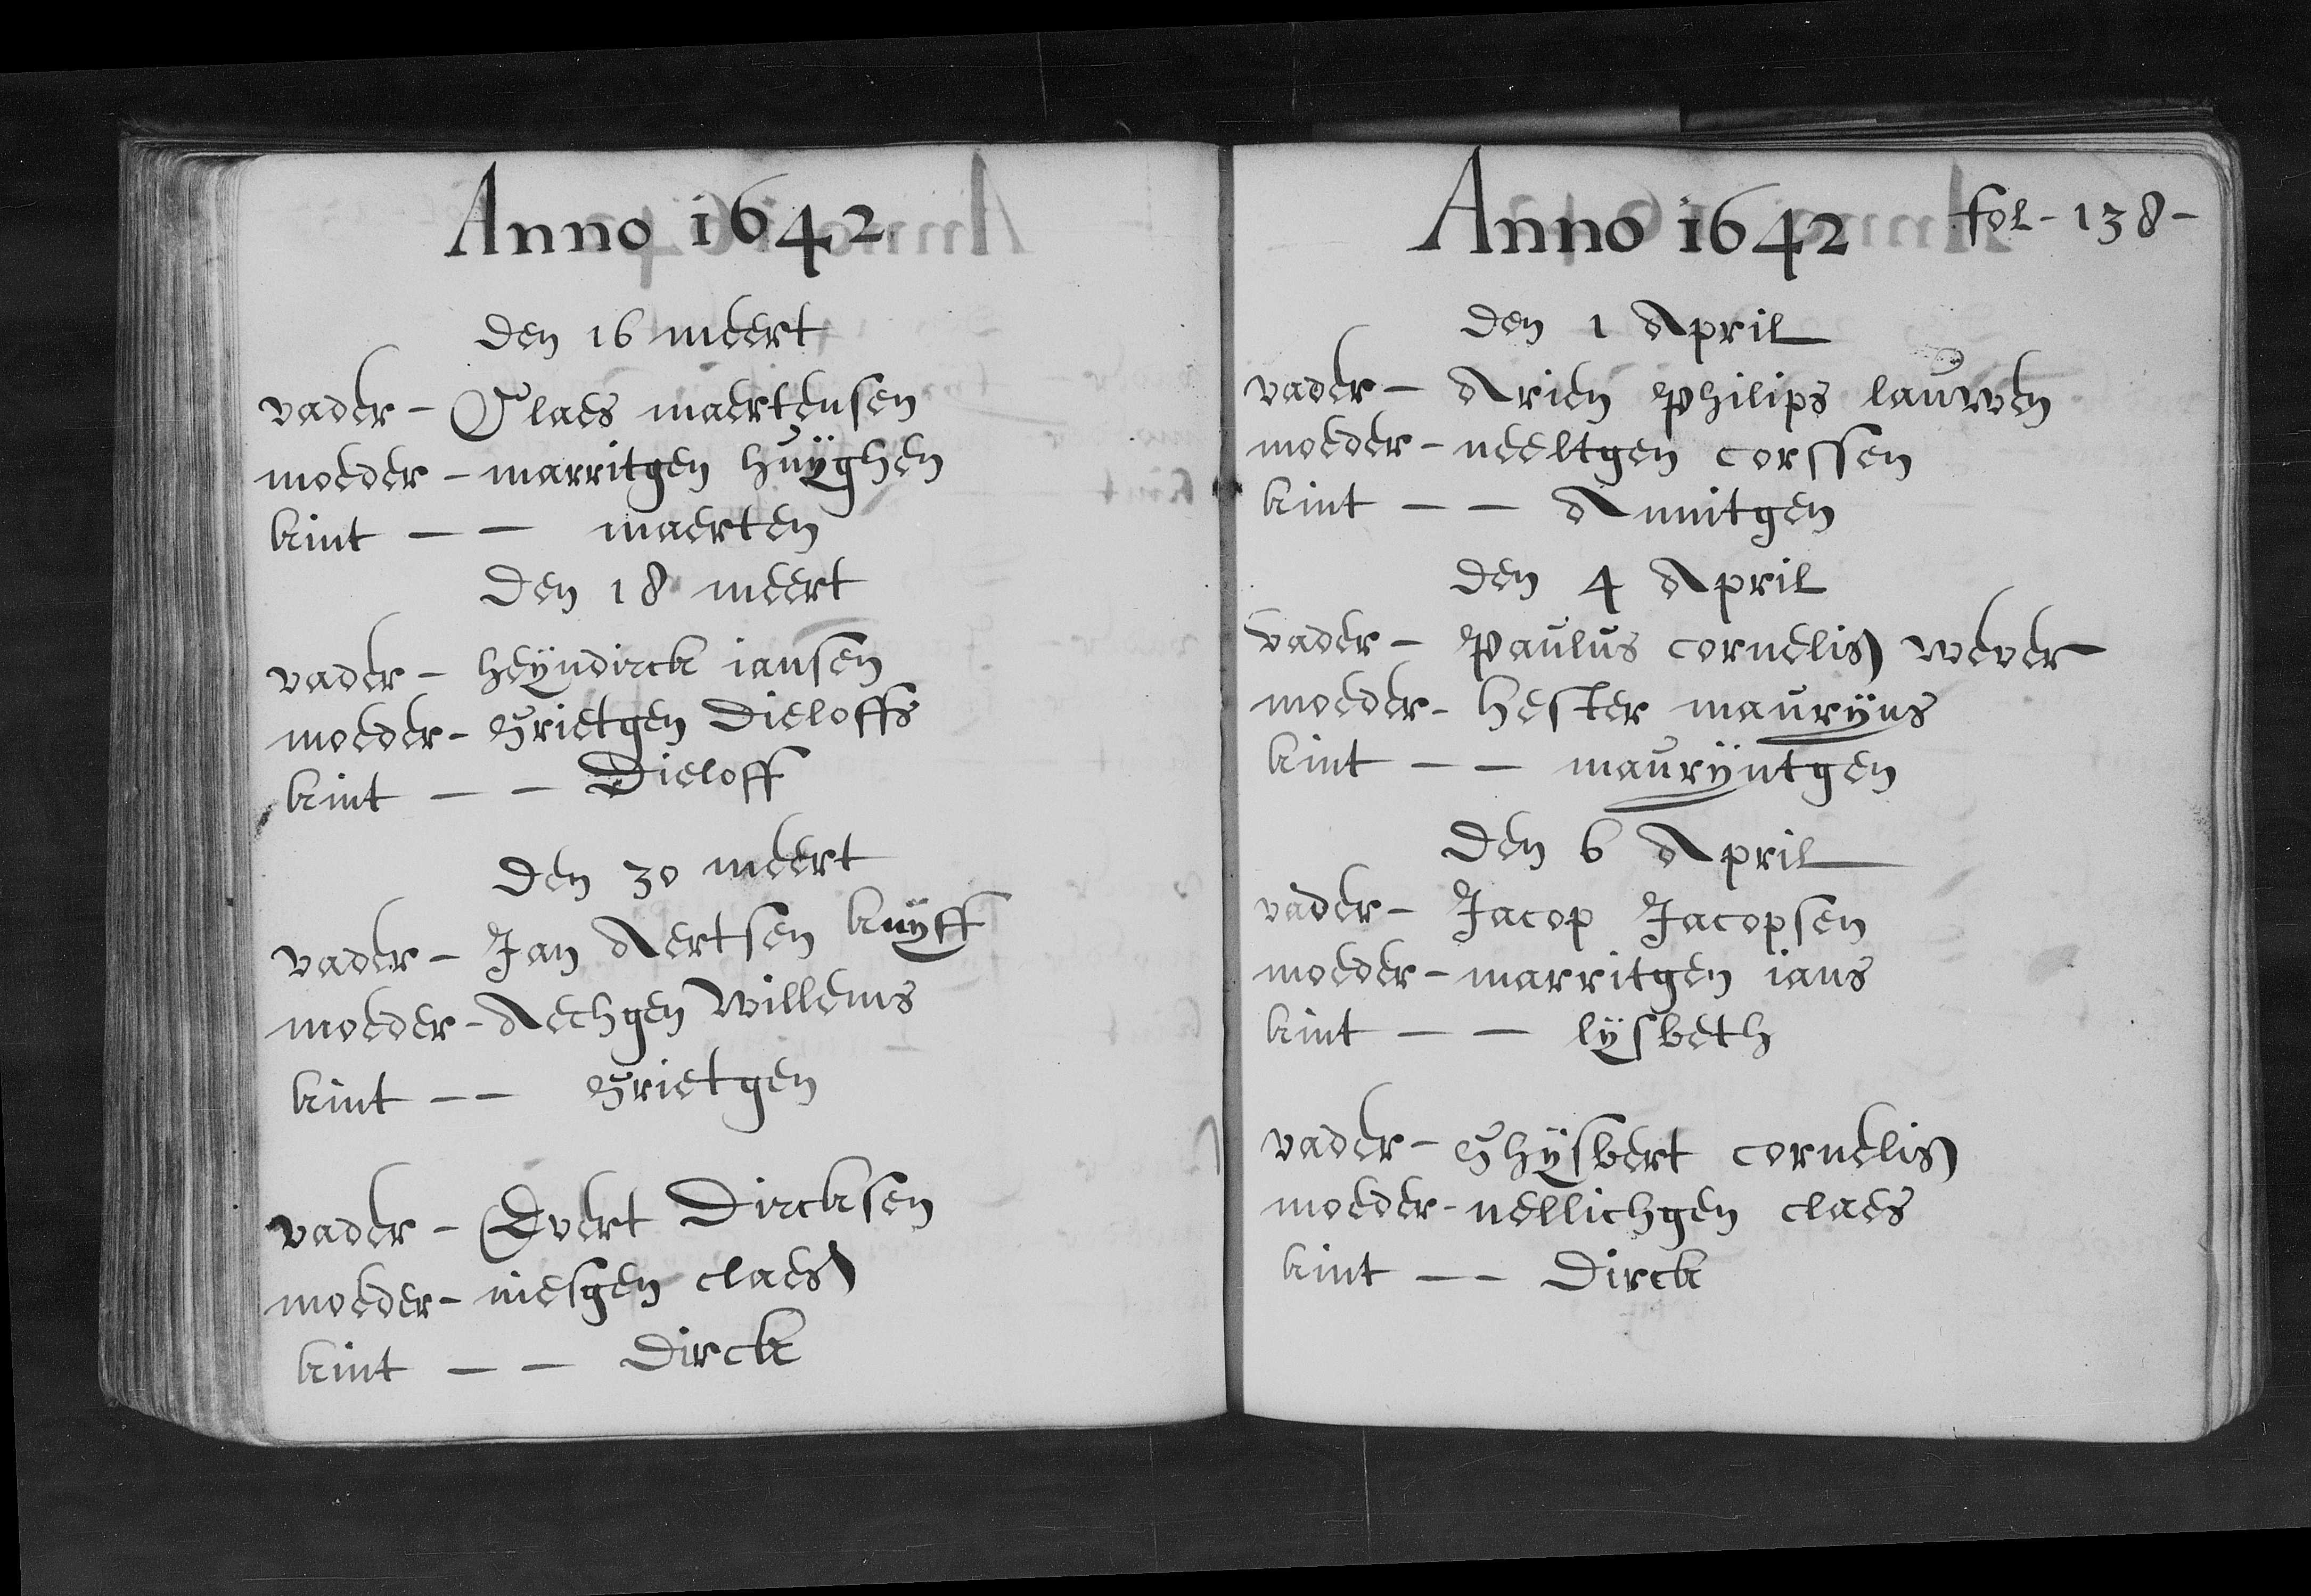 Anno 1642
den 16 meert
vader - Claes maertensen
moeder - marritgen huÿghen
kint - - maerten
den 18 meert
vader - heÿndirck iansen
moeder - Grietgen Dieloffs
kint - - Dieloff
den 30 meert
vader - Jan Aertsen kuÿff
moeder - Aechgen Willems
kint - - Grietgen
vader - Evert Dircksen
moeder - niesgen claes
kint - - Dirck
Anno 1642 fol - 138 -
den 1 April
vader - Arien Philips lauwen
moeder - neeltgen corssen
kint - - Annitgen
den 4 April
vader - Paulus cornelis wever
moeder - hester maurÿns
kint - - maurÿntgen
den 6 April
vader - Jacop Jacopsen
moeder - marritgen ians
kint - - lÿsbeth
vader - Ghÿsbert cornelis
moeder - nellichgen claes
kint - - Dirck